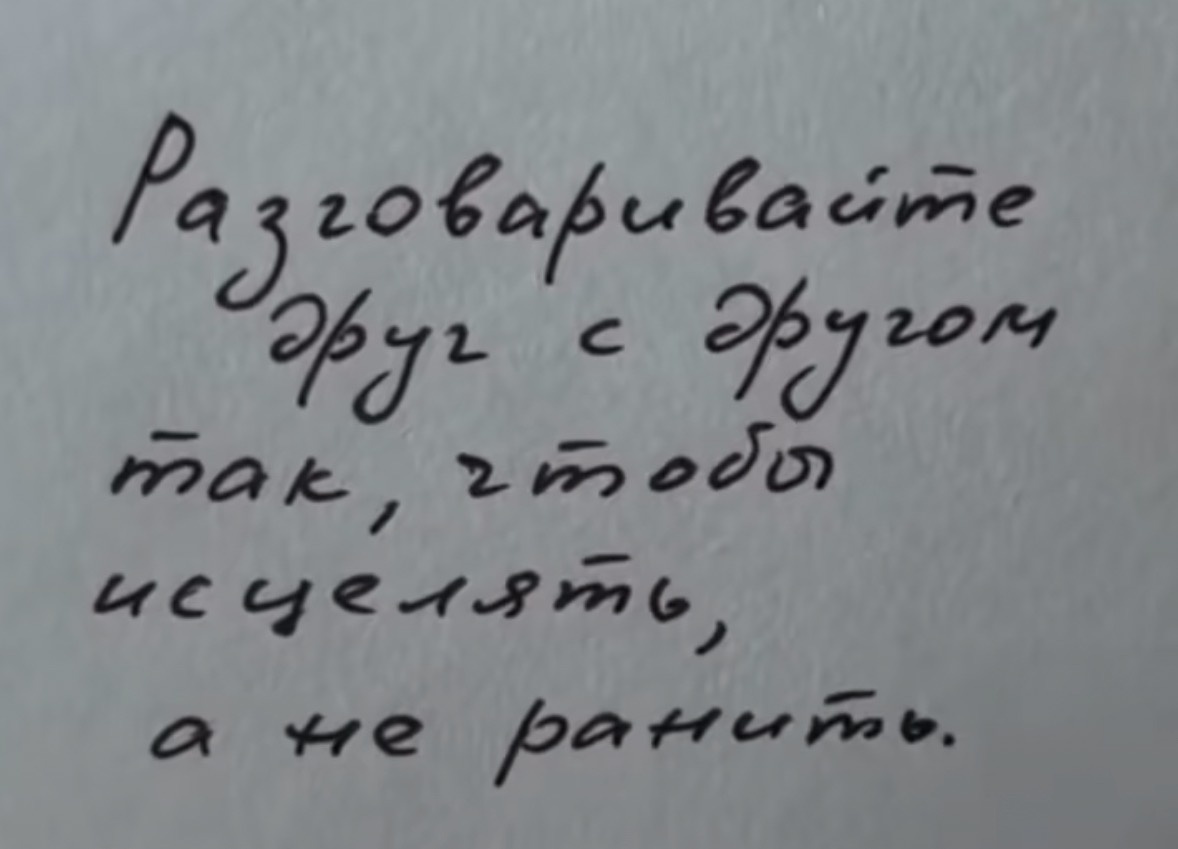 Разговаривайте
друг с другом
так, чтобы
исцелять,
а не ранить.